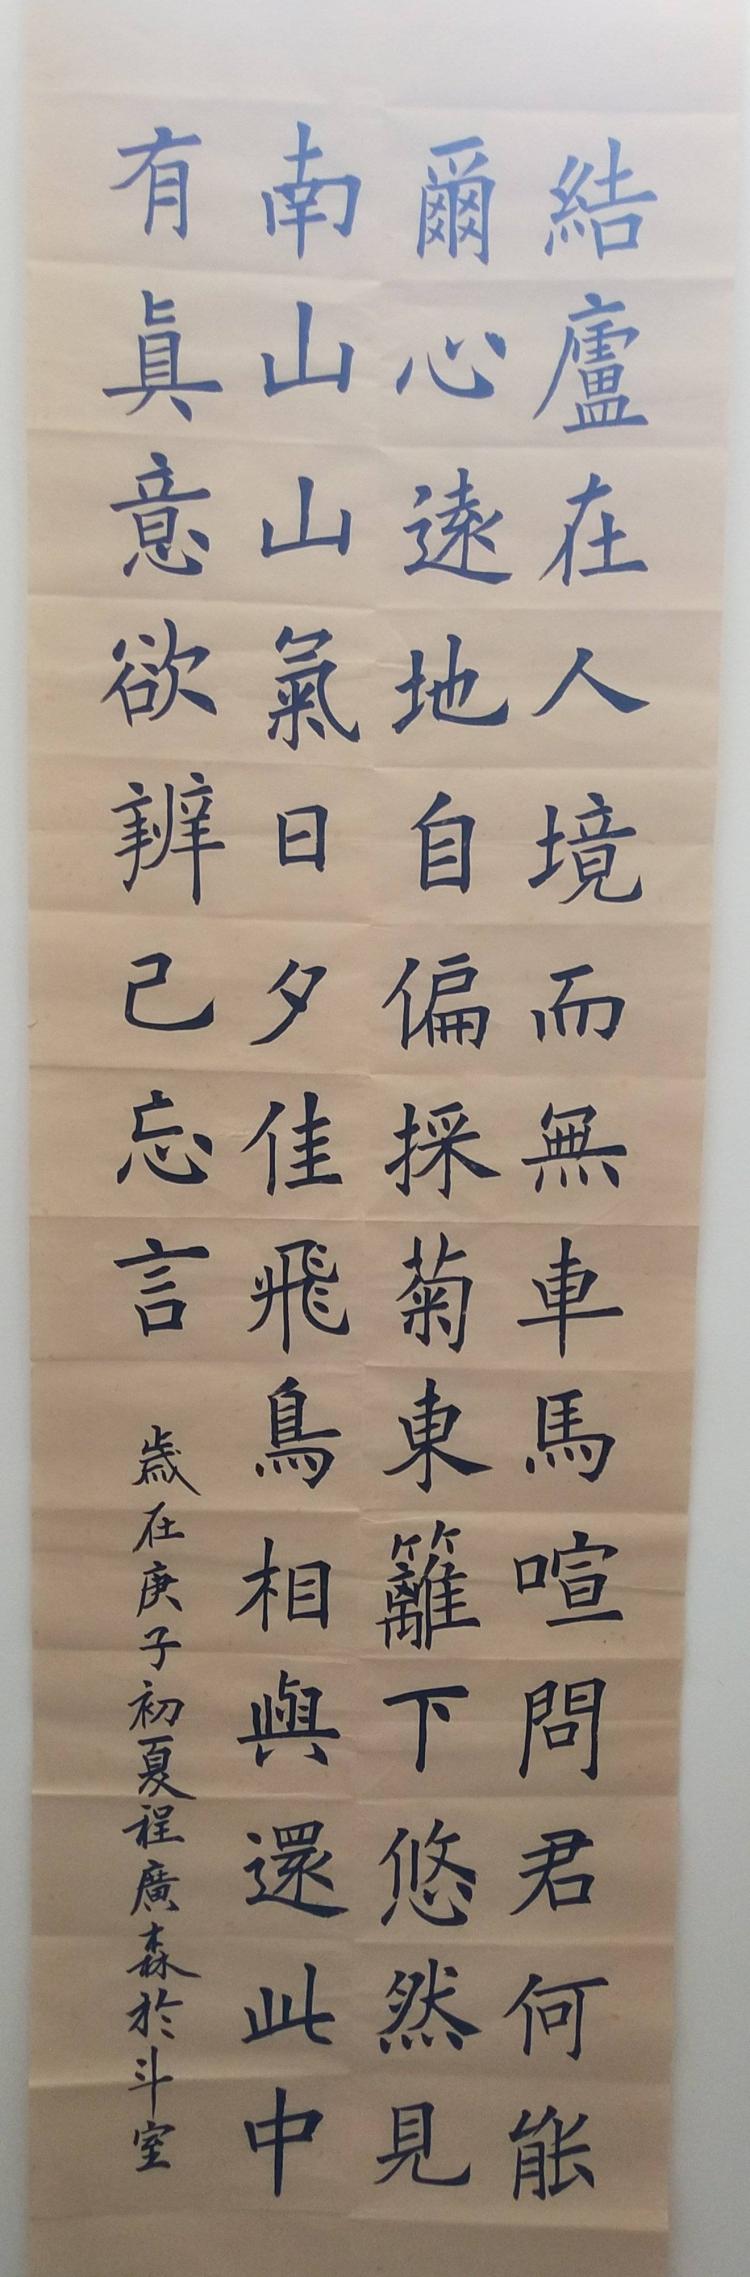 結廬在人境而無車馬喧問君何能
爾心遠地自偏採菊東籬下悠然見
南山山氣日夕佳飛鳥相與還此中
有眞意欲辨已忘言
歲在庚子初夏程廣森於斗室